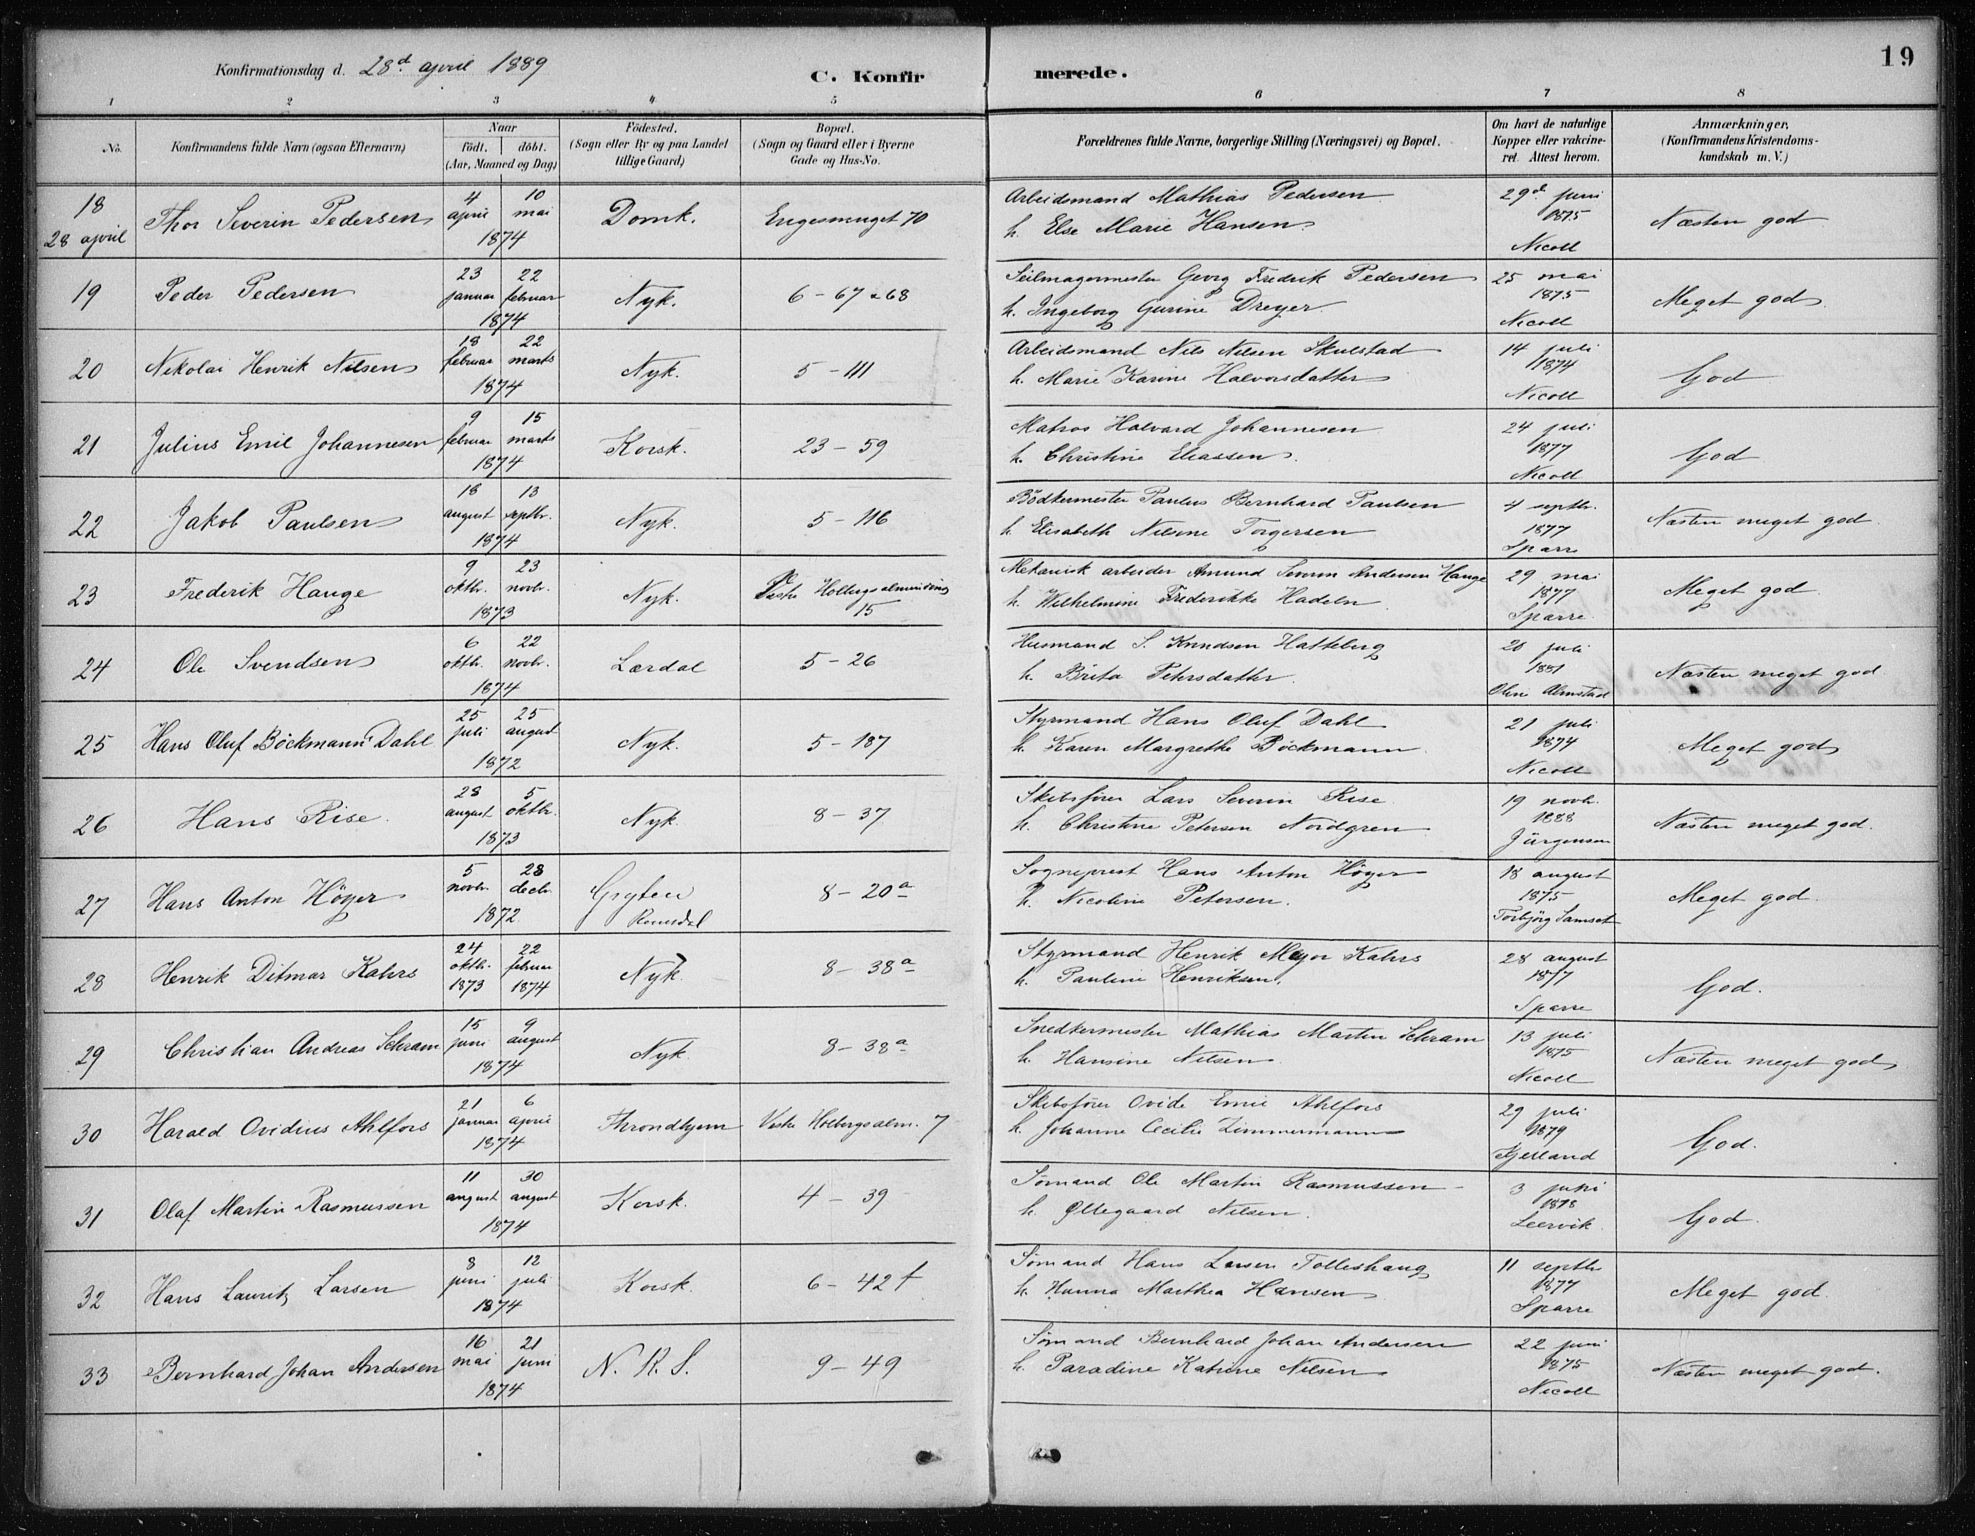 Konfirmationsdag d. 28d april 1889
C. Konfirmerede.
19
1 2 3 4 5 6 7 8
No.
Konfirmandens fulde Navn (ogsaa Efternavn)
Naar
födt. döbt.
(Aar, Maaned og Dag)
Födested.
(Sogn eller By og paa Landet
tillige Gaard)
Bopæl.
(Sogn og Gaard eller i Byerne
Gade og Hus-No.
Forældrenes fulde Navne, borgerlige Stilling (Næringsvei) og Bopæl.
Om havt de naturlige
Kopper eller vakcine-
ret. Attest herom.
Anmærkninger.
(Konfirmandens Kristendoms-
kundskab m. V.)
18 28 april Thor Severin Pedersen 4 april 10 mai 1874 Domk. Engesmuget 70
Arbeidsmand Mathias Pedersen
h. Else Marie Hansen
29d juni 1875 Nicoll Næsten god
19 Peder Pedersen 23 januar 22 februar 1874 Nyk. 6 - 67 & 68
Seilmagermester Georg Fredrik Pedersen
h. Ingeborg Gurine Dreyer
25 mai 1875 Nicoll Meget god
20 Nikolai Henrik Nilsen 18 februar 22 marts 1874 Nyk. 5 - 111
Arbeidsmand Nils Nilsen Skulstad
h. Marie Karine Halvorsdatter
14 juli 1874 Nicoll God
21 Julius Emil Johannesen 9 februar 15 marts 1874 Korsk. 23 - 59
Matros Halvard Johannesen
h. Christine Eliassen
24 juli 1877 Nicoll God
22 Jakob Paulsen 18 august 13 septbr. 1874 Nyk. 5 - 116
Bödkermester Paulus Bernhard Paulsen
h. Elisabeth Nilsine Torgersen
4 septbr. 1877 Sparre Næsten meget god
23 Frederik Hauge 9 oktbr. 23 novbr. 1873 Nyk. Vestre Holbergsalmending 15
Mekanisk arbeider Amund Severin Andersen Hauge
h. Wilhelmine Frederikke Hadeln
29 mai 1877 Sparre Meget god
24 Ole Svendsen 6 oktbr. 22 novbr. 1874 Lærdal 5 - 26
Husmand S. Knudsen Hatteberg
h. Brita Pehrsdatter
20 juli 1881 Oline Almstad Næsten meget god
25 Hans Oluf Böckmann Dahl 25 juli 25 august 1872 Nyk. 5 - 187
Styrmand Hans Oluf Dahl
h. Karen Margrethe Böckmann
21 juli 1874 Nicoll Meget god
26 Hans Rise 28 august 5 oktbr. 1873 Nyk. 8 - 37
Skibsfører Lars Severin Rise
h. Christine Petersen Nordgren
19 novbr. 1888 Jürgensen Næsten meget god.
27 Hans Anton Höyer 5 novbr. 28 decbr. 1872 Gryten Romsdal 8 - 20a
Sogneprest Hans Anton Höyer
h. Nicoline Petersen.
18 august 1875 Torbjörg Samset Meget god.
28 Henrik Ditmar Kahrs 24 oktbr. 1873 22 februar 1874 Nyk. 8 - 38a
Styrmand Henrik Meyer Kahrs
h. Pauline Henriksen.
28 august 1877 Sparre God.
29 Christian Andreas Schram 15 juni 9 august 1874 Nyk. 8 - 38a
Snedkermester Mathias Martin Schram
h. Hansine Nilsen
13 juli 1875 Nicoll Næsten meget god
30 Harald Ovidius Ahlfors 21 januar 6 april 1874 Throndhjem Vestre Holbergsalm. 7
Skibsfører Ovide Emil Ahlfors
h. Johanne Cecilie Zimmermann
29 juli 1879 Kjelland God.
31 Olaf Martin Rasmussen 11 august 30 august 1874 Korsk. 4 - 39
Sømand Ole Martin Rasmussen
h. Ollegaard Nilsen
3 juni 1878 Leervik. God.
32 Hans Lauritz Larsen 8 juni 12 juli 1874 Korsk. 6 - 42 f
Sømand Hans Larsen Tolleshaug
h. Hanna Marthea Hansen
11 septbr 1877 Sparre Meget god.
33 Bernhard Johan Andersen 16 mai 21 juni 1874 N. K. S. 9 - 49
Sømand Bernhard Johan Andersen
h. Paradine Katrine Nilsen
22 juni 1875 Nicoll Næsten meget god.